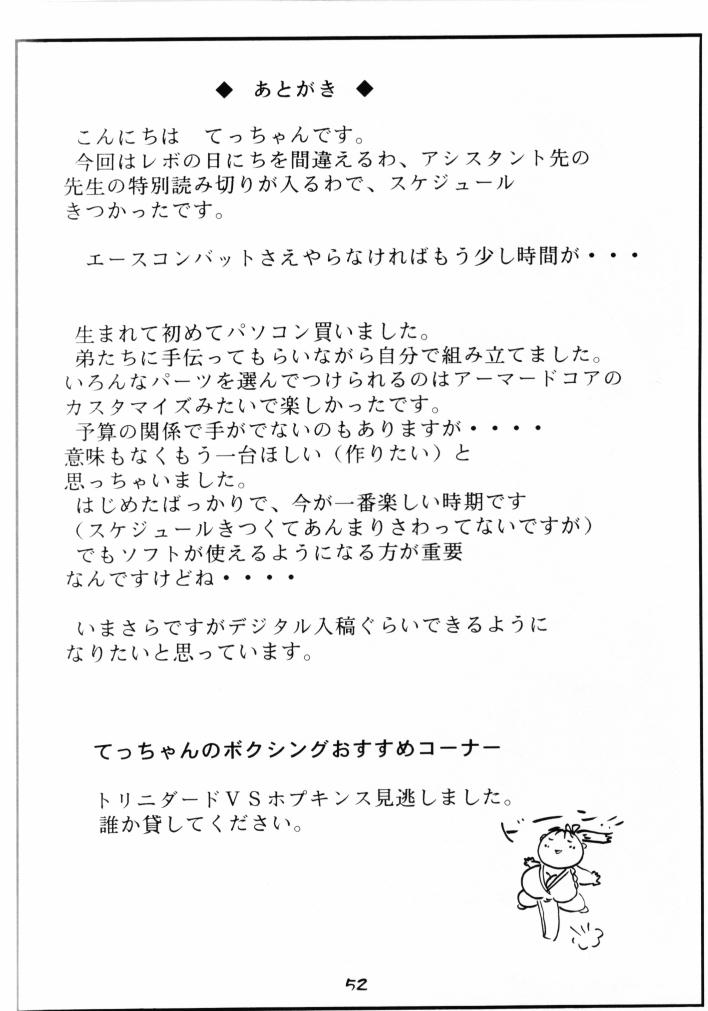 ◆　あとがき　◆
こんにちは　てっちゃんです。
今回はレボの日にちを間違えるわ、アシスタント先の
先生の特別読み切りが入るわで、スケジュール
きつかったです。
エースコンバットさえやらなければもう少し時間が・・・
生まれて初めてパソコン買いました。
弟たちに手伝ってもらいながら自分で組み立てました。
いろんなパーツを選んでつけられるのはアーマードコアの
カスタマイズみたいで楽しかったです。
予算の関係で手がでないのもありますが・・・・
意味もなくもう一台ほしい（作りたい）と
思っちゃいました。
はじめたばっかりで、今が一番楽しい時期です
（スケジュールきつくてあんまりさわってないですが）
でもソフトが使えるようになる方が重要
なんですけどね・・・・
いまさらですがデジタル入稿ぐらいできるように
なりたいと思っています。
てっちゃんのボクシングおすすめコーナー
トリニダードＶＳホプキンス見逃しました。
誰か貸してください。
52